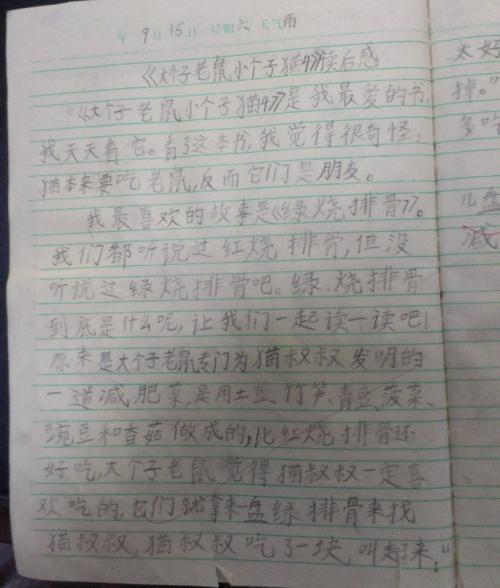 年 9月15日 星期六 天气雨
《大个子老鼠小个子猫4》读后感
《大个子老鼠小个子猫4》是我最爱的书,
我天天看它。看了这本书,我觉得很奇怪:
猫本来要吃老鼠,反而它们是朋友。
我最喜欢的故事是《绿烧排骨》。
我们都听说过红烧排骨,但没
听说过绿烧排骨吧。绿烧排骨
到底是什么呢,让我们一起读一读吧!
原来是大个子老鼠专门为猫叔叔发明的
一道减肥菜,是用土豆、竹笋、青豆、菠菜、
豌豆和香菇做成的,比红烧排骨还
好吃,大个子老鼠觉得猫叔叔一定喜
欢吃的,它们就拿来一盘绿排骨来找
猫叔叔,猫叔叔吃了一块,叫起来:“
太好
掉。”
多吃
几盘
减